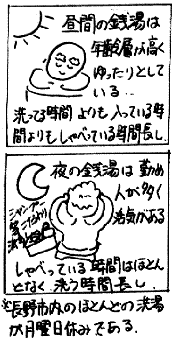 昼間の銭湯は
年齢層が高く
ゆったりとして
いる…
洗ってる時間よりも入っている時
間よりもしゃべっている時間長し.
夜の銭湯は勤め
人が多く
活気がある
シャンプー
洗う
しゃべっている時間はほとん
どなく洗う時間長し.
※長野市内のほとんどの洗湯
が月曜日休みである.